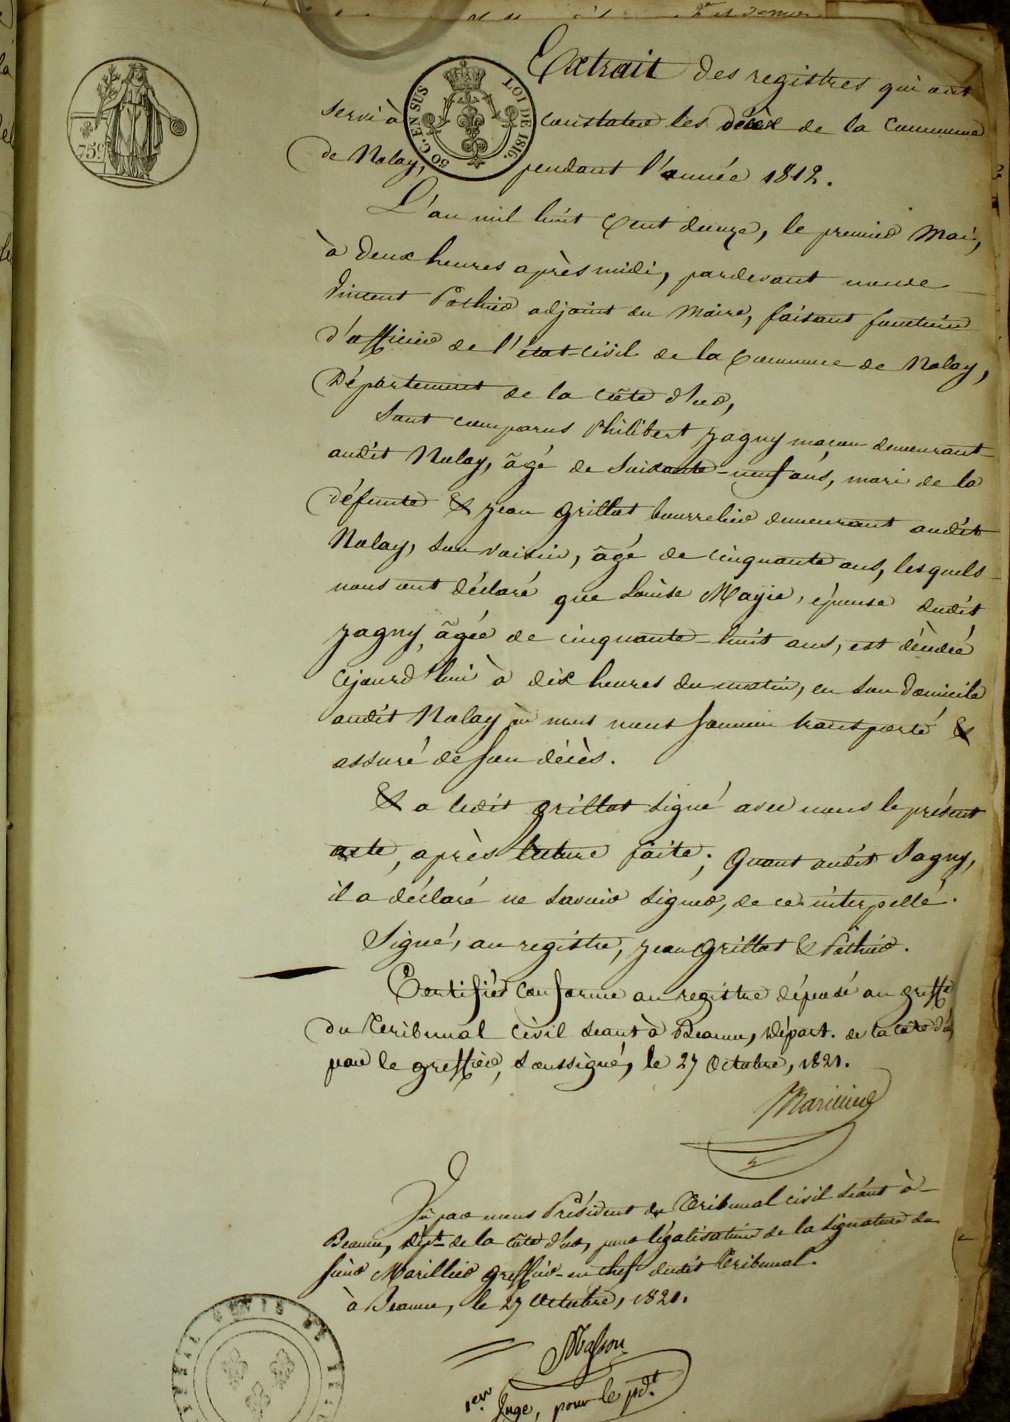 Extrait des registres qui ont
servi à constater les décès de la Commune
de Nolay, pendant l'année 1812.
L'an mil huit Cent douze, le premier Mai,
à Deux heures après midi, pardevant nous
Vincent Pothier adjoint du Maire, faisant fonction
d'officier de l'état civil de la Commune de Nolay,
Département de la Côte d'or,
Sont comparus Philibert Jagny maçon demeurant
audit Nolay, âgé de Soixante-neuf ans, mari de la
défunte & Jean Grillot bourrelier demeurant audit
Nolay, son voisin, âgé de cinquante ans, lesquels
nous ont déclaré que Louise , épouse dudit
Jagny, âgée de cinquante-huit ans, est décédée
cejourd'hui à dix heures du matin, en son Domicile
audit Nolay où nous nous sommes transporté &
assuré de son décès.
& a ledit Grillot signé avec nous le présent
acte, après lecture faite; Quant audit Jagny,
il a déclaré ne savoir signer, de ce interpellé.
Signé, au registre, Jean Grillot & Pothier.
Certifié conforme au registre déposé au greffe
du Tribunal Civil séant à Beaune, Départ. de la Côte d'or
par le greffier, soussigné, le 27 Octobre, 1821.
Marillier
Vu par nous Président du Tribunal civil séant à
Beaune, dépt. de la Côte d'or, pour légalisation de la signature du
sieur Marillier greffier en chef dudit Tribunal.
à Beaune, le 27 Octobre, 1821.
Masson
1er. Juge, pour le pdt.
75c
50 C. EN SUS
LOI DE 1816.
TRIBUNAL CIVIL DE